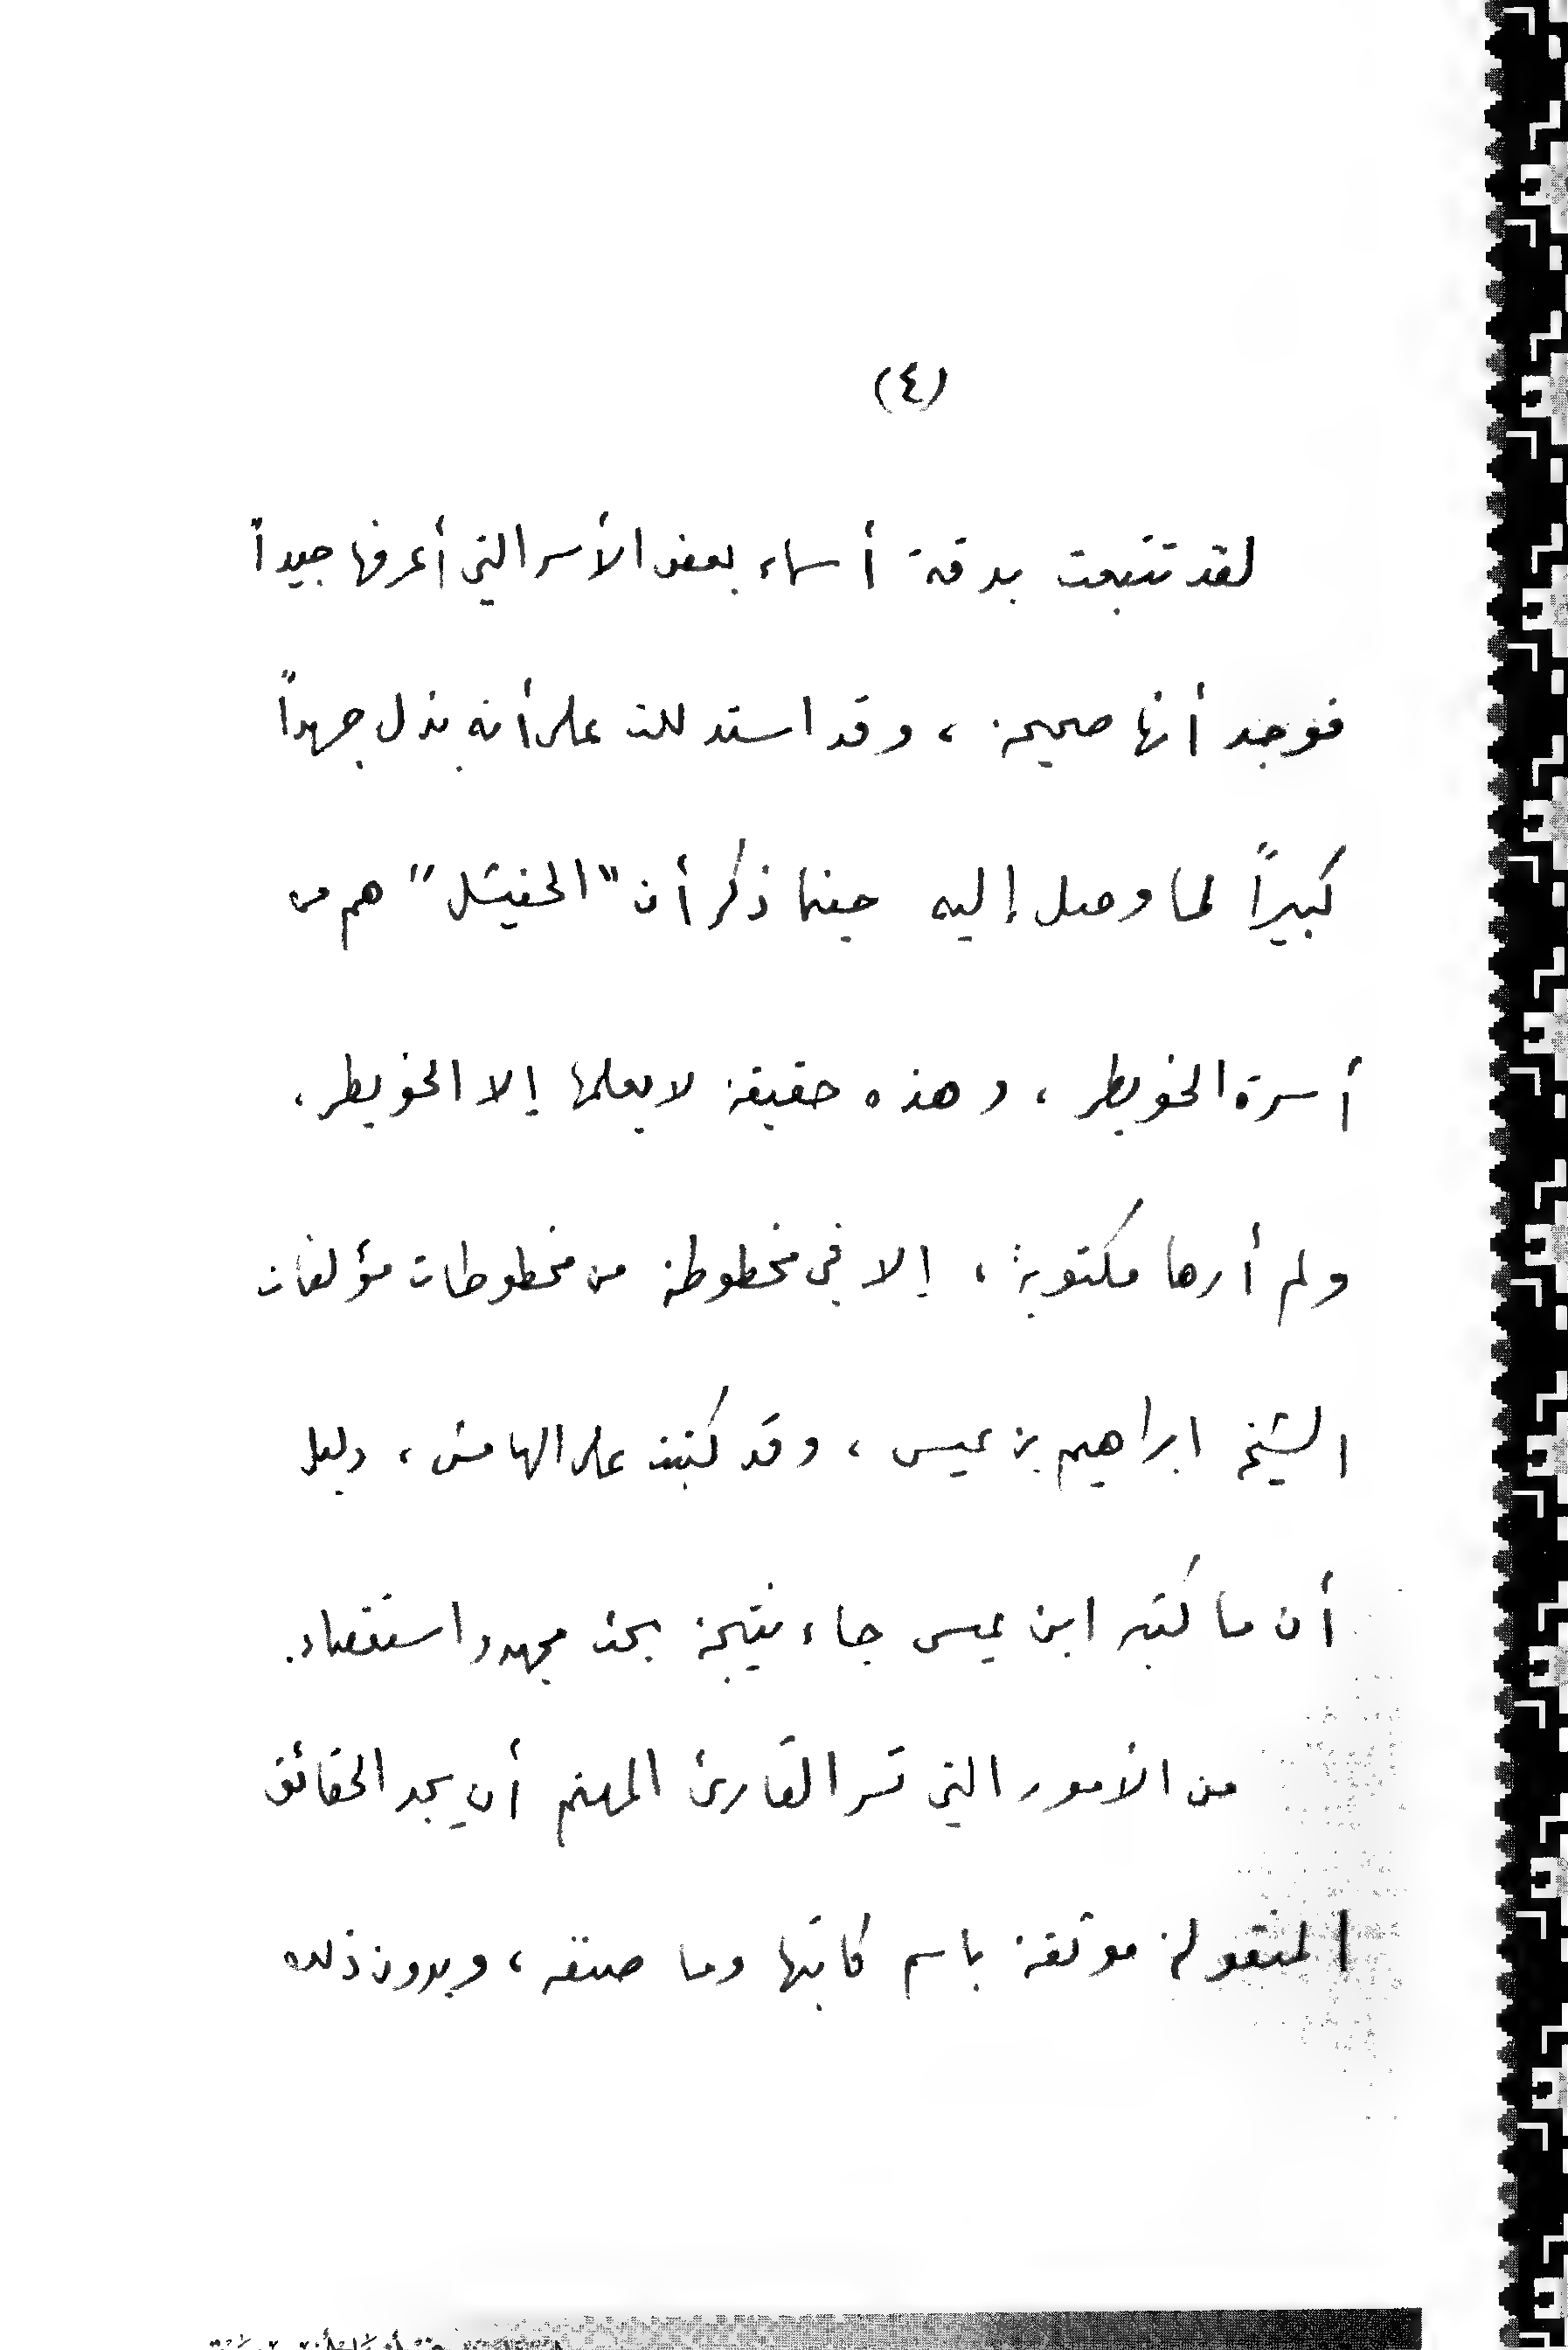 (٤)
لقد تتبعت بدقة أسماء بعض الأسر التي أعرفها جيداً
فوجد أنها صحيحة ، وقد استدللت على أنه بذل جهداً
كبيراً لما وصل إليه حينما ذكر أن "الحنيشل" هم من
أسرة الخويطر ، وهذه حقيقة لا يعلمها إلا الخويطر ،
ولم أرها مكتوبة ، إلا في مخطوطة من مخطوطات مؤلفات
الشيخ ابراهيم بن عيسى ، وقد كتبت على الهامش ، دليل
أن ما كتبه ابن عيسى جاء نتيجة بحث مجهد واستقصاء.
من الأمور التي تسر القارئ المهتم أن يجد الحقائق
المنقولة موثقة باسم كاتبها وما صنفه ، وبدون ذلك